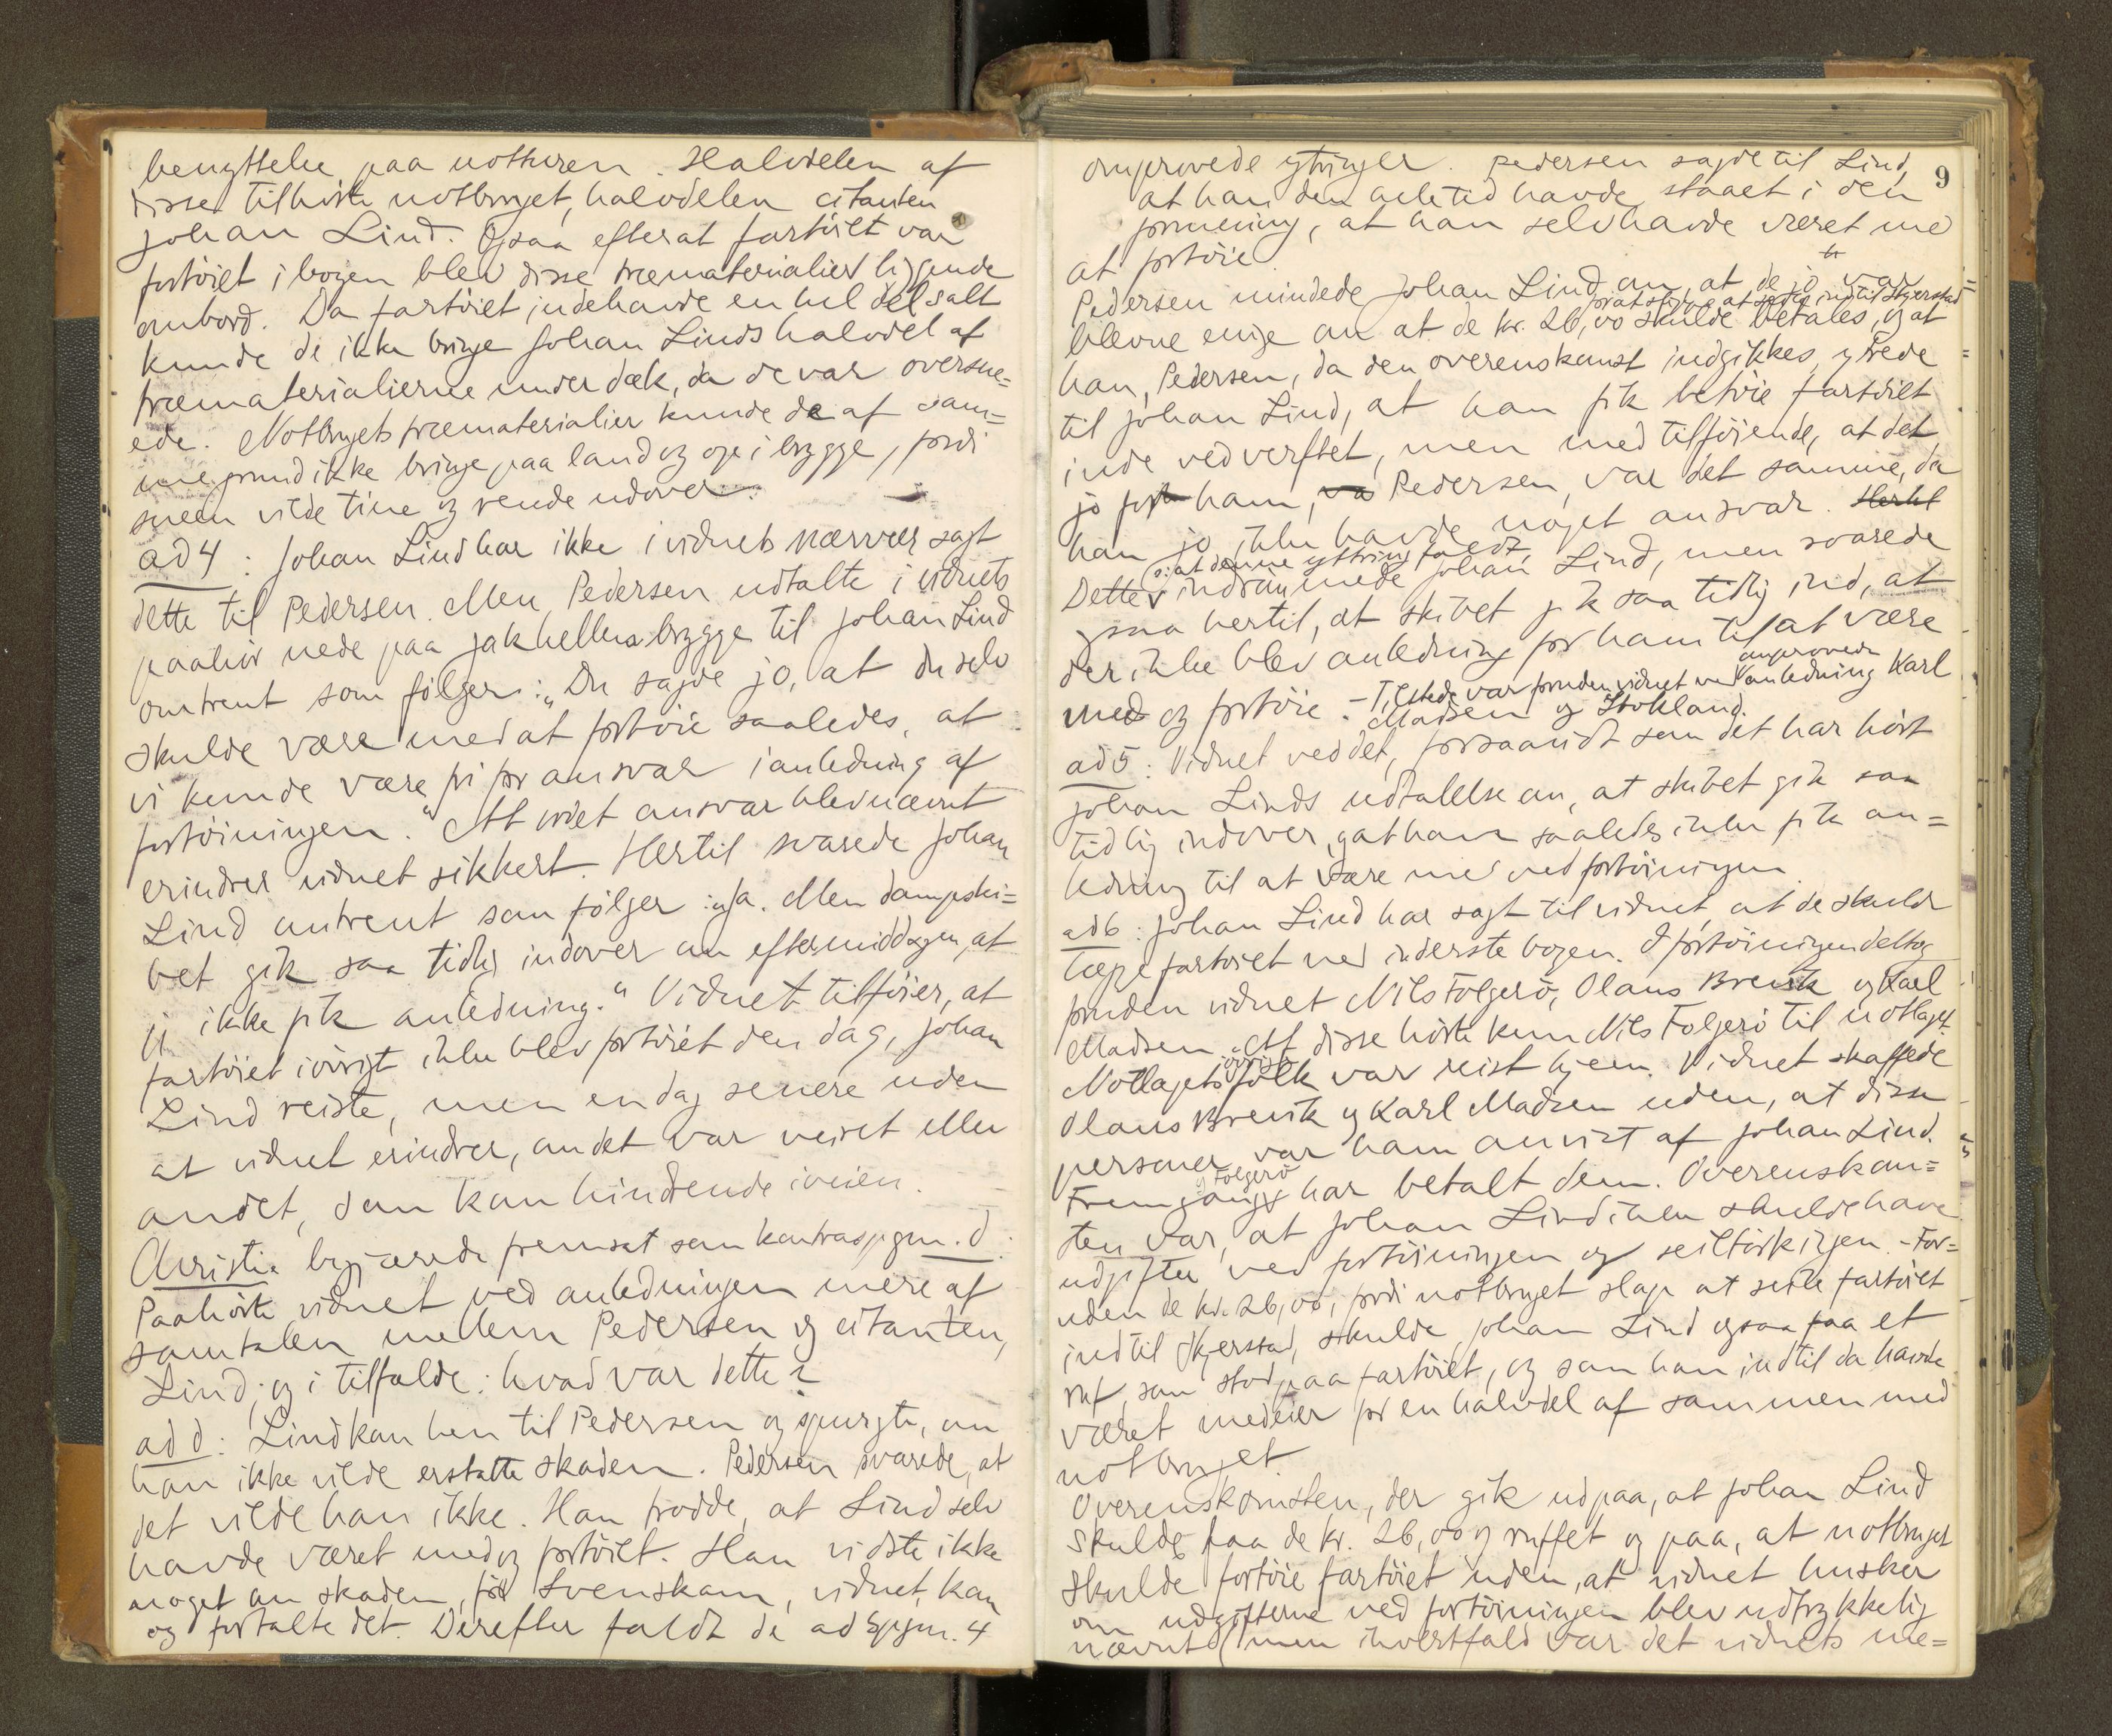 benyttelse paa notturen. Halvdelen af
disse tilhørte notbruget, halvdelen citanten
Johan Lind. Ogsaa efterat fartöiet var
fortöiet i bogen blev disse træmaterialier liggende
ombord. Da fartöiet indehavde en hel del salt
kunde de ikke bringe Johan Linds halvdel af
træmaterialierne under dæk, da de var oversne=
ede. Notbrugets træmaterialier kunde de af sam=
me grund ikke bringe paa land og op i brygge, fordi
sneen vilde tine og rende udover.
ad 4: Johan Lind har ikke i vidnets nærvær sagt
dette til Pedersen. Men Pedersen udtalte i vidnets
paahör nede paa Jakhellns brygge til Johan Lind
omtrent som fölger: "Du sagde jo, at du selv
skulde være med at fortöie saaledes, at
vi kunde være fri for ansvar i anledning af
fortöiningen." At ordet ansvar blev nævnt
erindrer vidnet sikkert. Hertil svarede Johan
Lind omtrent som fölger: "Ja. Men dampski=
bet gik saa tidlig indover om eftermiddagen, at
jeg ikke fik anledning." Vidnet tilföier, at
fartöiet iövrigt ikke blev fortöiet den dag, Johan
Lind reiste, men en dag senere uden
at vidnet erindrer, om det var veiret eller
andet, som kom hindrende iveien.
Christie begjærede fremsat som kontraspgm. d:
Paahörte vidnet ved anledningen mere af
samtalen mellem Pedersen og citanten,
Lind; og i tilfælde: hvad var dette?
ad d: Lind kom hen til Pedersen og spurgte, om
han ikke vilde erstatte skaden. Pedersen svarede, at
det vilde han ikke. Han trodde, at Lind selv
havde været med og fortöiet. Han vidste ikke
noget om skaden, för Svenskam, vidnet, kom
og fortalte det. Derefter faldt de ad Spgm. 4
9
omprovede ytringer. Pedersen sagde til Lind,
at han den hele tid havde staaet i den
formening, at han selv havde været med
at fortöie.
Pedersen mindede Johan Lind om, at de jo var
for at slippe at seile ind til Skjerstad
blevne enige om at de kr. 26,00 skulde betales, og at
han, Pedersen, da den overenskomst indgikkes, ytrede
til Johan Lind, at han fik betöie fartöiet
inde ved verftet, men med tilföiende, at det
jo for ham, Pedersen, var det samme, da
han jo ikke havde noget ansvar.
o: at denne yttring faldt
Dette indrömmede Johan Lind, men svarede
ogsaa hertil, at skibet gik saa tidlig ind, at
der ikke blev anledning for ham til at være
med og fortöie. - Tilstede var foruden vidnet ved omprovede anledning Karl
Madsen og Stokland.
ad 5: Vidnet ved det, forsaavidt som det har hört
Johan Linds udtalelse om, at skibet gik saa
tidlig indover, og at han saaledes ikke fik an=
ledning til at være med ved fortöiningen.
ad 6: Johan Lind har sagt til vidnet, at de skulde
lægge fartöiet ved inderste bogen. I fortöiningen deltog
foruden vidnet Nils Fölgerö, Olaus Brevik og Karl
Madsen. Af disse hörte kun Nils Folgerö til notlaget.
Notlagets övrige folk var reist hjem. Vidnet skaffede
Olaus Brevik og Karl Madsen uden, at disse
personer var ham anvist af Johan Lind.
og Folgerö
har betalt dem. Overenskom=
sten var, at Johan Lind ikke skulde have
udgifter ved fortöiningen og seiltörkingen. - For=
uden de kr. 26,00, fordi notbruget slap at seile fartöiet
ind til Skjerstad, skulde Johan Lind ogsaa faa et
ruf, som stod paa fartöiet, og som han indtil da havde
været medeier for en halvdel af sammen med
notbruget.
Overenskomsten, der gik ud paa, at Johan Lind
skulde faa de kr. 26,00 og ruffet og paa, at notbruget
skulde fortöie fartöiet uden, at vidnet husker
om udgifterne ved fortöiningen blev udtrykkelig
nævnt (men ihvertfald var det vidnets me=